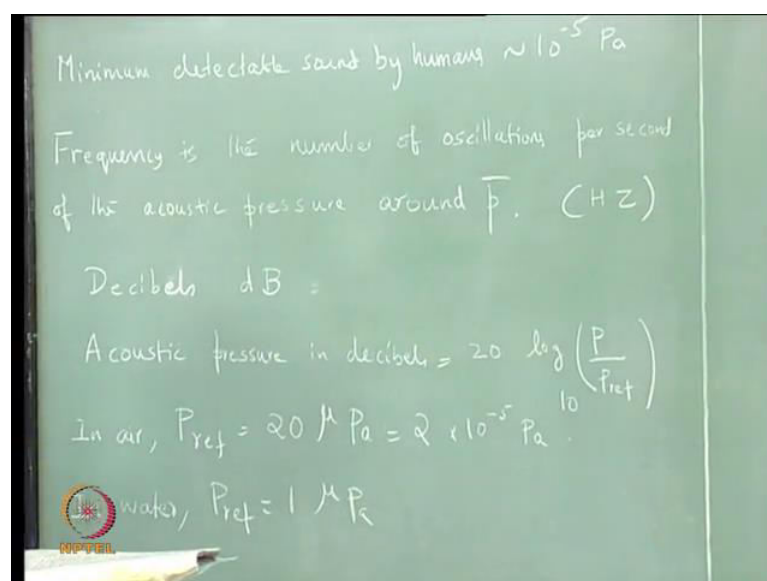 Minimum detectable sound by humans ~ 10⁻⁵ Pa
Frequency is the number of oscillations per second
of the acoustic pressure around p̅. (HZ)
Decibels dB =
Acoustic pressure in decibels = 20 log₁₀ (P / Pref)
In air, Pref = 20 μ Pa = 2 × 10⁻⁵ Pa.
In water, Pref = 1 μ Pa
NPTEL